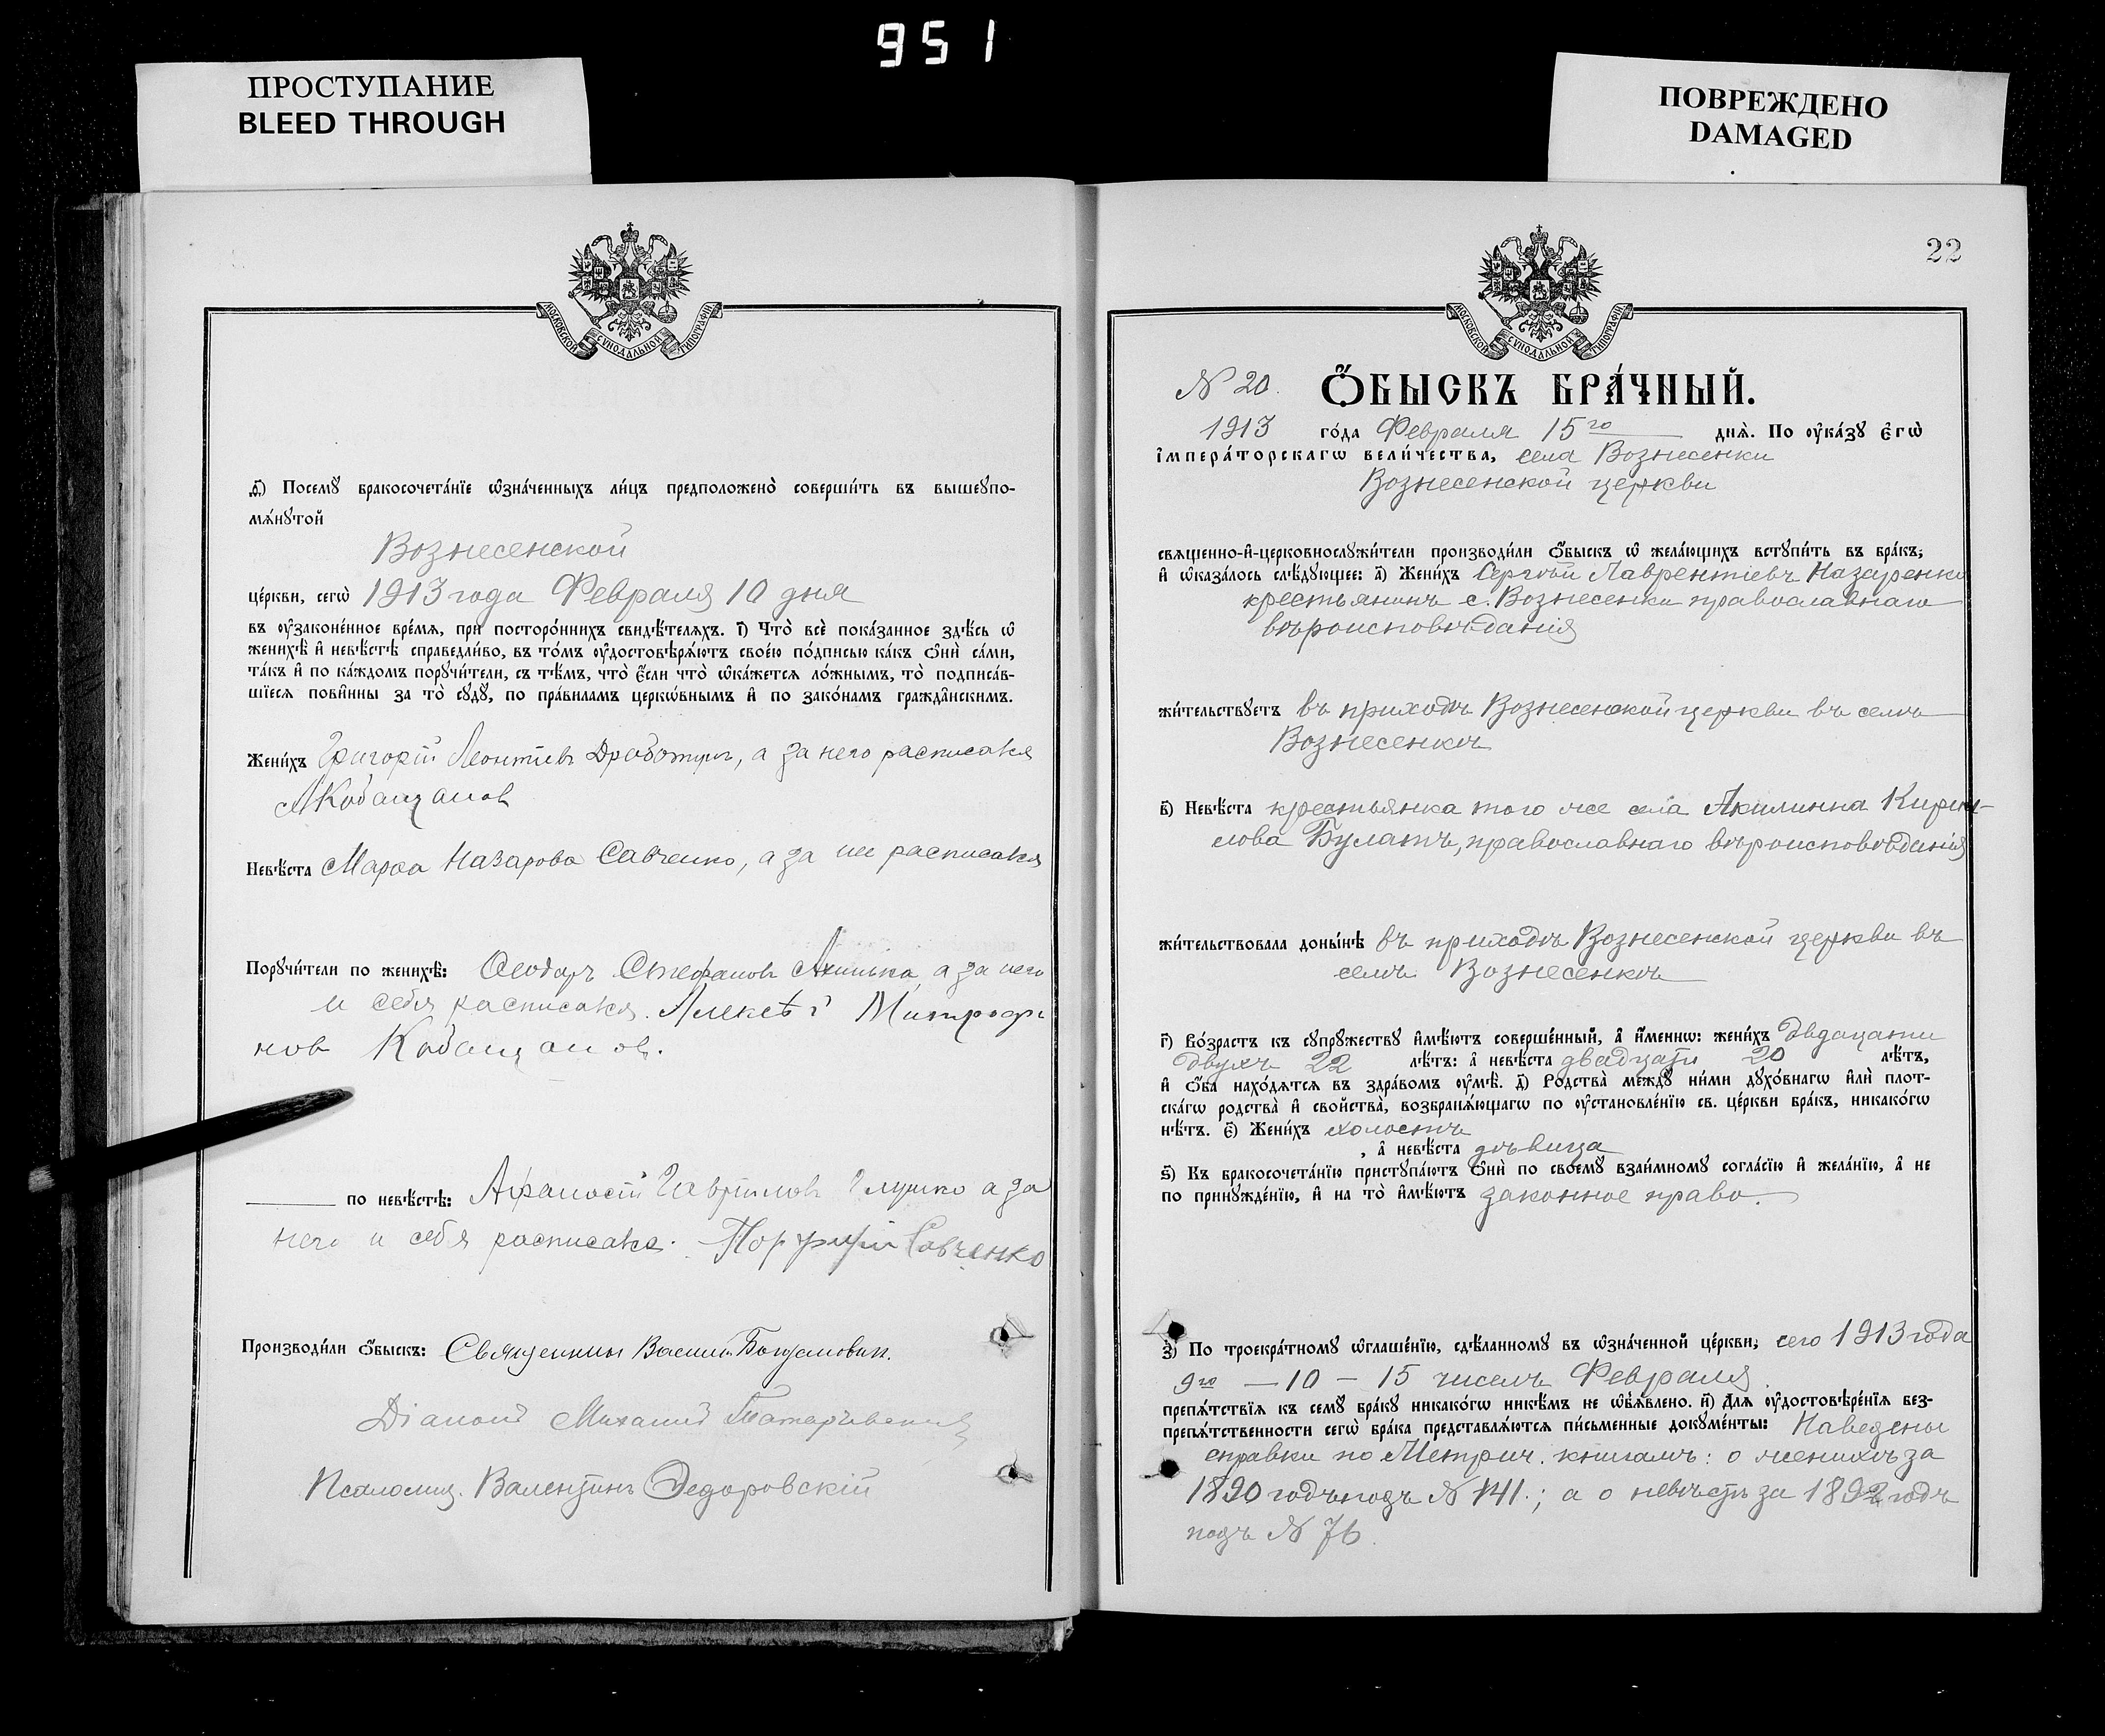 951
ПРОСТУПАНИЕ
BLEED THROUGH
ПОВРЕЖДЕНО
DAMAGED
МОСКОВСКОЙ СѴНОДАЛЬНОЙ ТИПОГРАФІИ
ѳ҃) Посемꙋ бракосочета́нїе ѡ҆зна́ченныхъ ли́цъ предположено̀ соверши́ть въ вышеꙋпо-
мѧ́нꙋтой
Вознесенской
це́ркви, сегѡ̀ 1913 года Февраля 10 дня
въ ᲂу҆законе́нное вре́мѧ, при посторо́ннихъ свидѣ́телѧхъ. і҃) Что̀ всѐ пока́занное здѣ́сь ѡ҆
женихѣ̀ и҆ невѣ́стѣ справедли́во, въ то́мъ ᲂу҆достовѣрѧ́ютъ свое́ю по́дписью ка́къ ѻ҆нѝ са́ми,
та́къ и҆ по ка́ждомъ порꙋчи́тели, съ тѣ́мъ, что̀ є҆́сли что̀ ѡ҆ка́жетсѧ ло́жнымъ, то̀ подписа́в-
шїесѧ пови́нны за то̀ сꙋдꙋ̀, по пра́виламъ церкѡ́внымъ и҆ по зако́намъ гражда̑нскимъ.
Жени́хъ Григорій Леонтіевъ Дработунъ, а за него расписался
А Кобанцановъ
Невѣ́ста Марѳа Назарова Савченко, а за нее расписался
Порꙋчи́тели по женихѣ̀: Ѳеодоръ Стефановъ а за него
и себя расписался. Алексѣй Митрофа
новъ Кобанцановъ.
по невѣ́стѣ: Афанасій Гавриловъ Глушко а за
него и себя расписался. Порфирій Савченко
Производи́ли ѻ҆́быскъ: Священникъ Василій Богдановичъ.
Діаконъ Михаилъ
Псаломщ. Валентинъ Ѳедоровскій
22
МОСКОВСКОЙ СѴНОДАЛЬНОЙ ТИПОГРАФІИ
№ 20. Ѻ҆́БЫСКЪ БРА́ЧНЫЙ.
1913 го́да Февраля 15го днѧ̀. По ᲂу҆ка́зꙋ є҆гѡ̀
і҆мпера́торскагѡ вели́чества, села Вознесенки
Вознесенской церкви
свѧщенно-и҆-церковнослꙋжи́тели производи́ли ѻ҆́быскъ ѡ҆ жела́ющихъ встꙋпи́ть въ бра́къ;
и҆ ѡ҆каза́лось слѣ́дꙋющее: а҃) Жени́хъ Сергѣй Лаврентіевъ Назаренко
крестьянинъ с. Вознесенки православнаго
вѣроисповѣданія
жи́тельствꙋетъ въ приходѣ Вознесенской церкви въ селѣ
Вознесенкѣ
в҃) Невѣ́ста крестьянка того же села Акилина Кирил-
лова Булатъ, православнаго вѣроисповѣданія
жи́тельствовала доны́нѣ въ приходѣ Вознесенской церкви въ
селѣ Вознесенкѣ
г҃) во́зрастъ къ сꙋпрꙋ́жествꙋ и҆мѣ́ютъ соверше́нный, а҆ и҆́меннѡ: жени́хъ двадцати
двухъ 22 лѣ́тъ: а҆ невѣ́ста двадцати 20 лѣ́тъ,
и҆ ѻ҆́ба нахо́дѧтсѧ въ здра́вомъ ᲂу҆мѣ̀. д҃) Родства̀ междꙋ̀ ни́ми дꙋхо́внагѡ и҆лѝ плот-
ска́гѡ родства̀ и҆ сво́йства̀, возбранѧ́ющагѡ по ᲂу҆становле́нїю св. це́ркви бра́къ, никако́гѡ
нѣ́тъ. є҃) Жени́хъ холостъ
, а҆ невѣ́ста дѣвица
ѕ҃) Къ бракосочета́нїю пристꙋпа́ютъ ѻ҆нѝ по своемꙋ̀ взаи́мномꙋ согла́сїю и҆ жела́нїю, а҆ не
по принꙋжде́нїю, и҆ на то̀ и҆мѣ́ютъ законное право.
з҃) По троекра́тномꙋ ѡ҆глаше́нїю, сдѣ́ланномꙋ въ ѡ҆зна́ченной це́ркви, сего 1913 года
9го — 10 — 15 чиселъ Февраля
препѧ́тствїѧ къ семꙋ̀ бра́кꙋ никако́гѡ никѣ́мъ не ѡ҆б̾ѧ́влено. и҃) Длѧ ᲂу҆достовѣре́нїѧ без-
препѧ́тственности сегѡ̀ бра́ка представлѧ́ютсѧ пи́сьменные докꙋме́нты: Наведены
справки по Метрич. книгамъ: о женихѣ за
1890 годъ подъ № 141.; а о невѣстѣ за 1892 годъ
подъ № 76.